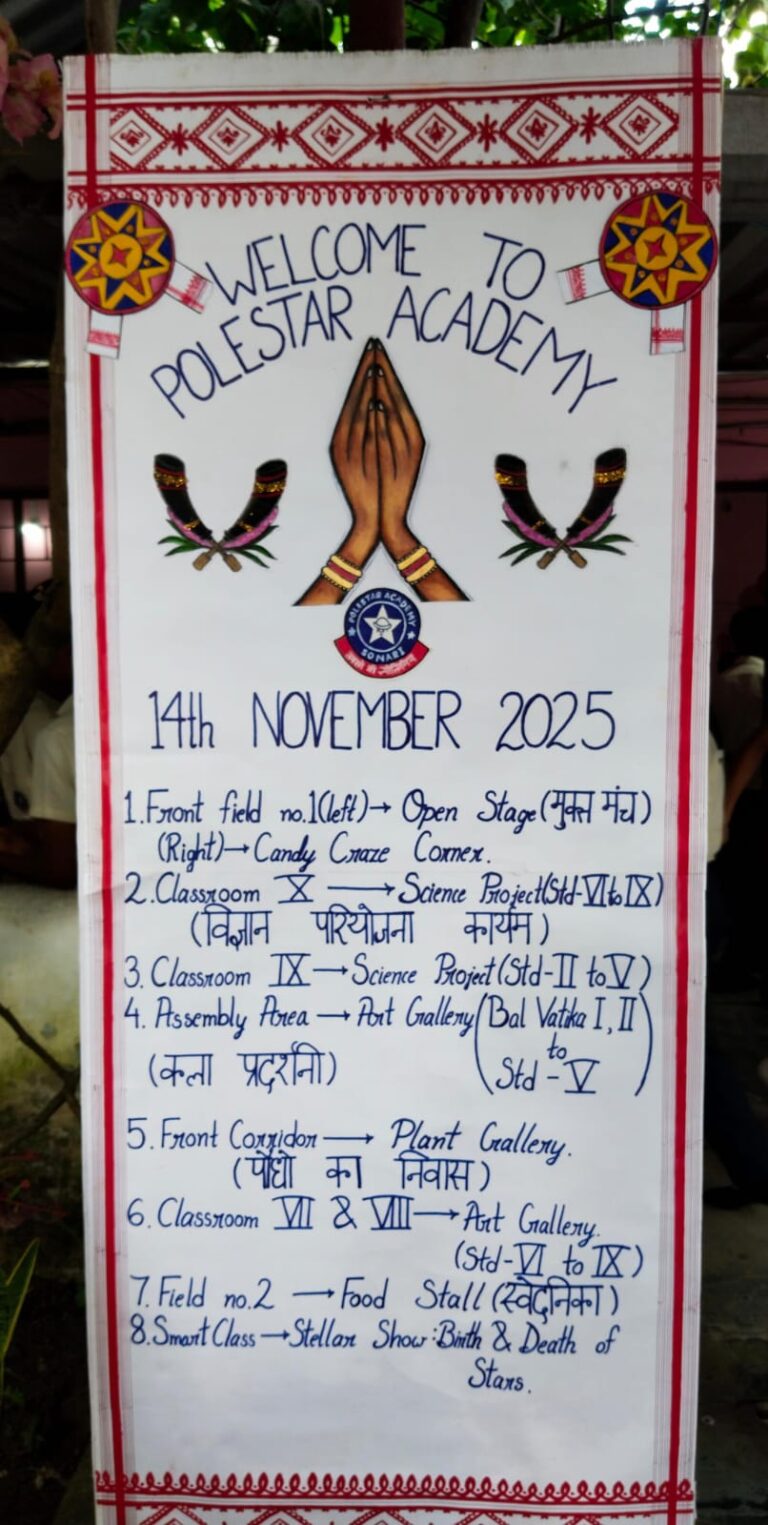 WELCOME TO
POLESTAR ACADEMY
POLESTAR ACADEMY
SONARI
14th NOVEMBER 2025
1. Front field no.1(left)→ Open Stage (मुक्त मंच)
(Right)→ Candy Craze Corner.
2. Classroom X → Science Project(Std-VI to IX)
(विज्ञान परियोजना कार्यम)
3. Classroom IX → Science Project (Std-II to V)
4. Assembly Area → Art Gallery (Bal Vatika I, II
to
(कला प्रदर्शनी) Std - V)
5. Front Corridor → Plant Gallery.
(पौधो का निवास)
6. Classroom VII & VIII → Art Gallery.
(Std-VI to IX)
7. Field no.2 → Food Stall (स्वेदनिका)
8. Smart Class → Stellar Show: Birth & Death of
Stars.